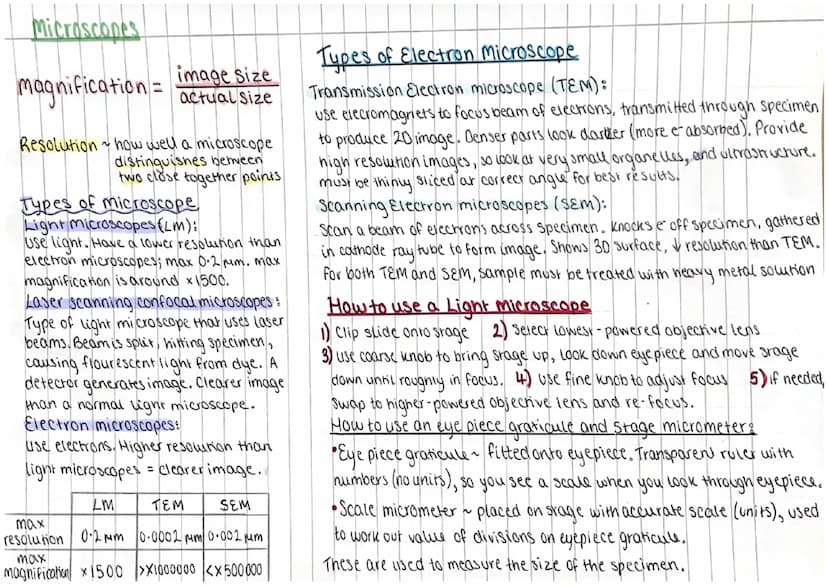 Microscopes
magnification = image size
actual size
Resolution ~ how well a microscope
distinguishes between
two close together points
Types of microscope
Light microscopes (LM):
Use light. Have a lower resolution than
electron microscopes; max 0.2 µm. max
magnification is around ×1500.
Laser scanning confocal microscopes:
Type of light microscope that uses laser
beams. Beam is split, hitting specimen,
causing flourescent light from dye. A
detector generates image. Clearer image
than a normal light microscope.
Electron microscopes:
Use electrons. Higher resolution than
light microscopes = clearer image.
LM TEM SEM
max
resolution 0.2 µm 0.0002 µm 0.002 µm
max
magnification ×1500 >×1000000 <×500000
Types of Electron Microscope
Transmission Electron microscope (TEM):
use elecromagnets to focus beam of electrons, transmitted through specimen
to produce 2D image. Denser parts look darker (more e⁻ absorbed). Provide
high resolution images, so look at very small organelles, and ultrastructure.
must be thinly sliced at correct angle for best results.
Scanning Electron microscopes (SEM):
Scan a beam of electrons across specimen. Knocks e⁻ off specimen, gathered
in cathode ray tube to form image. Shows 3D surface, ↓ resolution than TEM.
For both TEM and SEM, sample must be treated with heavy metal solution
How to use a Light Microscope
1) Clip slide onto stage 2) Select lowest-powered objective lens
3) use coarse knob to bring stage up, look down eyepiece and move stage
down until roughly in focus. 4) use fine knob to adjust focus 5) if needed,
swap to higher-powered objective lens and re-focus.
How to use an eye piece graticule and stage micrometer:
•Eye piece graticule ~ fitted onto eyepiece. Transparent ruler with
numbers (no units), so you see a scale when you look through eyepiece.
•Scale micrometer ~ placed on stage with accurate scale (units), used
to work out value of divisions on eyepiece graticule.
These are used to measure the size of the specimen.